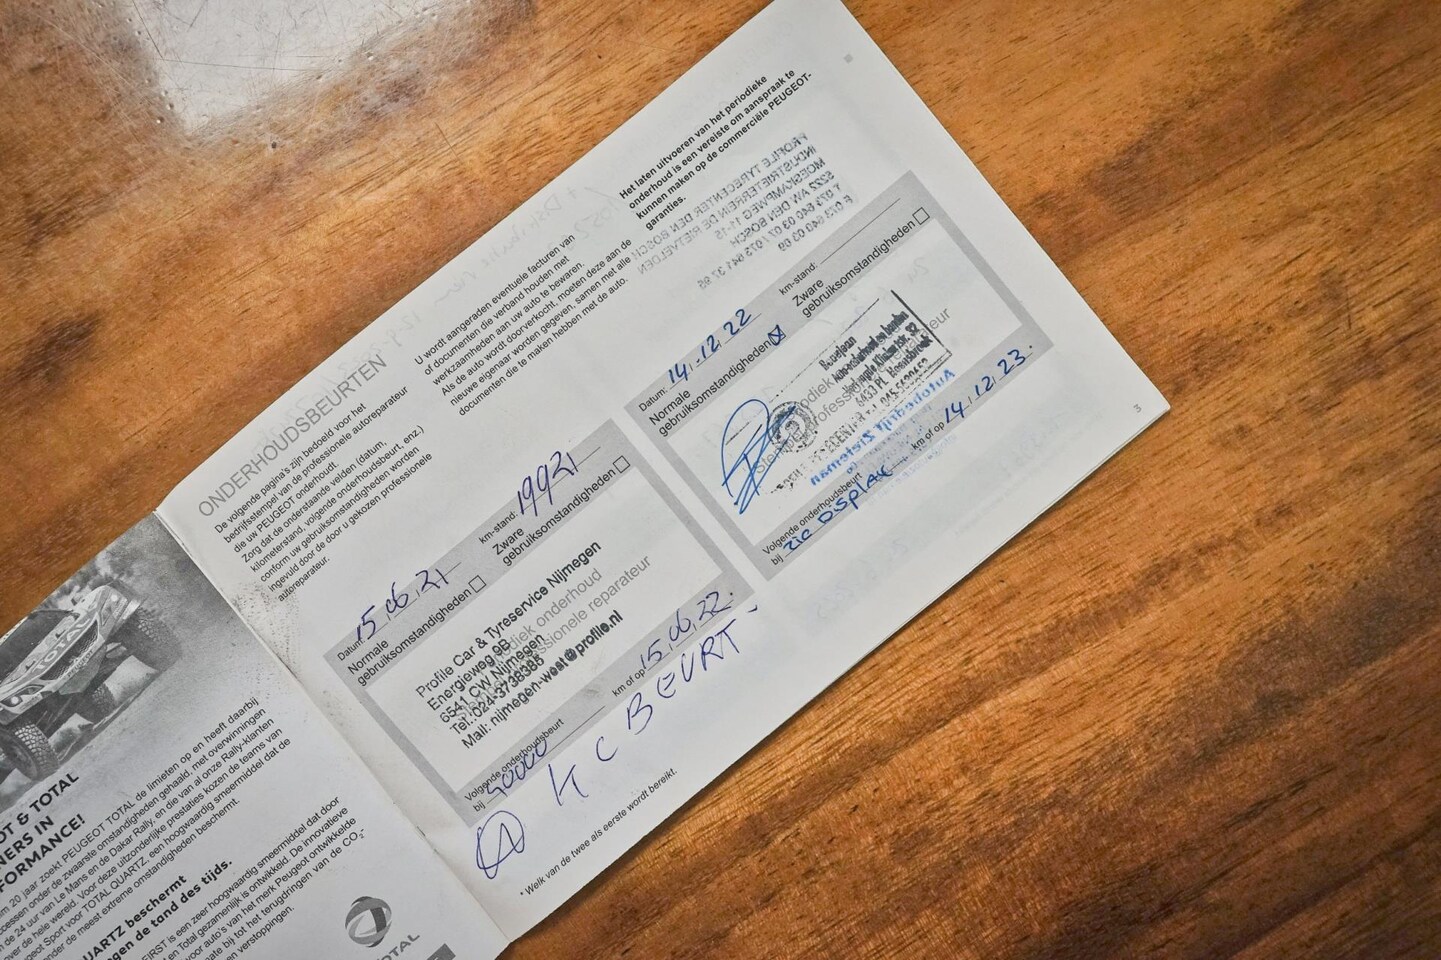 ONDERHOUDSBEURTEN
De volgende pagina's zijn bedoeld voor het
bedrijfsstempel van de professionele autoreparateur
die uw PEUGEOT onderhoudt.
Zorg dat de onderstaande velden (datum,
kilometerstand, volgende onderhoudsbeurt, enz.)
conform uw gebruiksomstandigheden worden
ingevuld door de door u gekozen professionele
autoreparateur.
U wordt aangeraden eventuele facturen van
of documenten die verband houden met
werkzaamheden aan uw auto te bewaren.
Als de auto wordt doorverkocht, moeten deze aan de
nieuwe eigenaar worden gegeven, samen met alle
documenten die te maken hebben met de auto.
Het laten uitvoeren van het periodieke
onderhoud is een vereiste om aanspraak te
kunnen maken op de commerciële PEUGEOT-
garanties.
Datum: 15.06.21
km-stand: 19921
Normale
gebruiksomstandigheden
Zware
gebruiksomstandigheden
Profile Car & Tyreservice Nijmegen
Energieweg 9B
6541 CW Nijmegen
Tel.:024-3738385
Mail: nijmegen-west@profile.nl
Volgende onderhoudsbeurt
bij
km of op 15.06.22.
KC BEURT
* Welk van de twee als eerste wordt bereikt.
Datum: 14.12.22
km-stand:
Normale
gebruiksomstandigheden
Zware
gebruiksomstandigheden
Volgende onderhoudsbeurt
bij zie DISPLAY km of op 14.12.23.
3
PROFILE TYRECENTER DEN BOSCH
INDUSTRIETERREIN DE RIETVELDEN
MOESKAMPWEG 11-15
5222 AW DEN BOSCH
& TOTAL
IN
20 jaar zoekt PEUGEOT TOTAL de limieten op en heeft daarbij
onder de zwaarste omstandigheden gehaald, met overwinningen
de 24 uur van Le Mans en de Dakar Rally, en die van al onze Rally-klanten
over de hele wereld. Voor deze uitzonderlijke prestaties kozen de teams van
Sport voor TOTAL QUARTZ, een hoogwaardig smeermiddel dat de
onder de meest extreme omstandigheden beschermt.
beschermt
de tand des tijds.
FIRST is een zeer hoogwaardig smeermiddel dat door
en Total gezamenlijk is ontwikkeld. De innovatieve
voor auto's van het merk Peugeot ontwikkelde
bij tot het terugdringen van de CO2-
en verstoppingen.
TOTAL